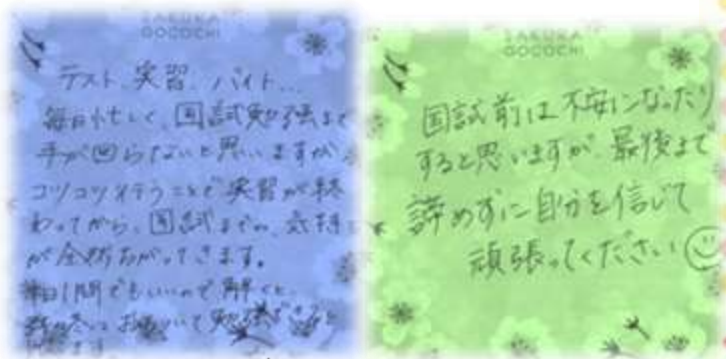 SAKURA
GOCOCHI
テスト、実習、バイト…
毎日忙しく、国試勉強まで
手が回らないと思いますが
コツコツ行うことで実習が終
わってから、国試までの、気持
が全然ちがってきます。
毎日1問でもいいので解くと、
おちついて勉強できると
SAKURA
GOCOCHI
国試前は不安になったり
すると思いますが、最後まで
諦めずに自分を信じて
頑張ってください